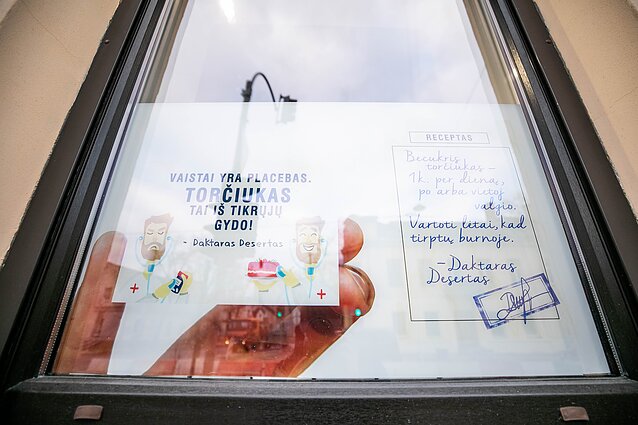 VAISTAI YRA PLACEBAS.
TORČIUKAS
TAI IŠ TIKRŲJŲ
GYDO!
- Daktaras Desertas
RECEPTAS
Becukris
torčiukas -
1k. per dieną,
po arba vietoj
valgio.
Vartoti lėtai, kad
tirptų burnoje.
- Daktaras
Desertas